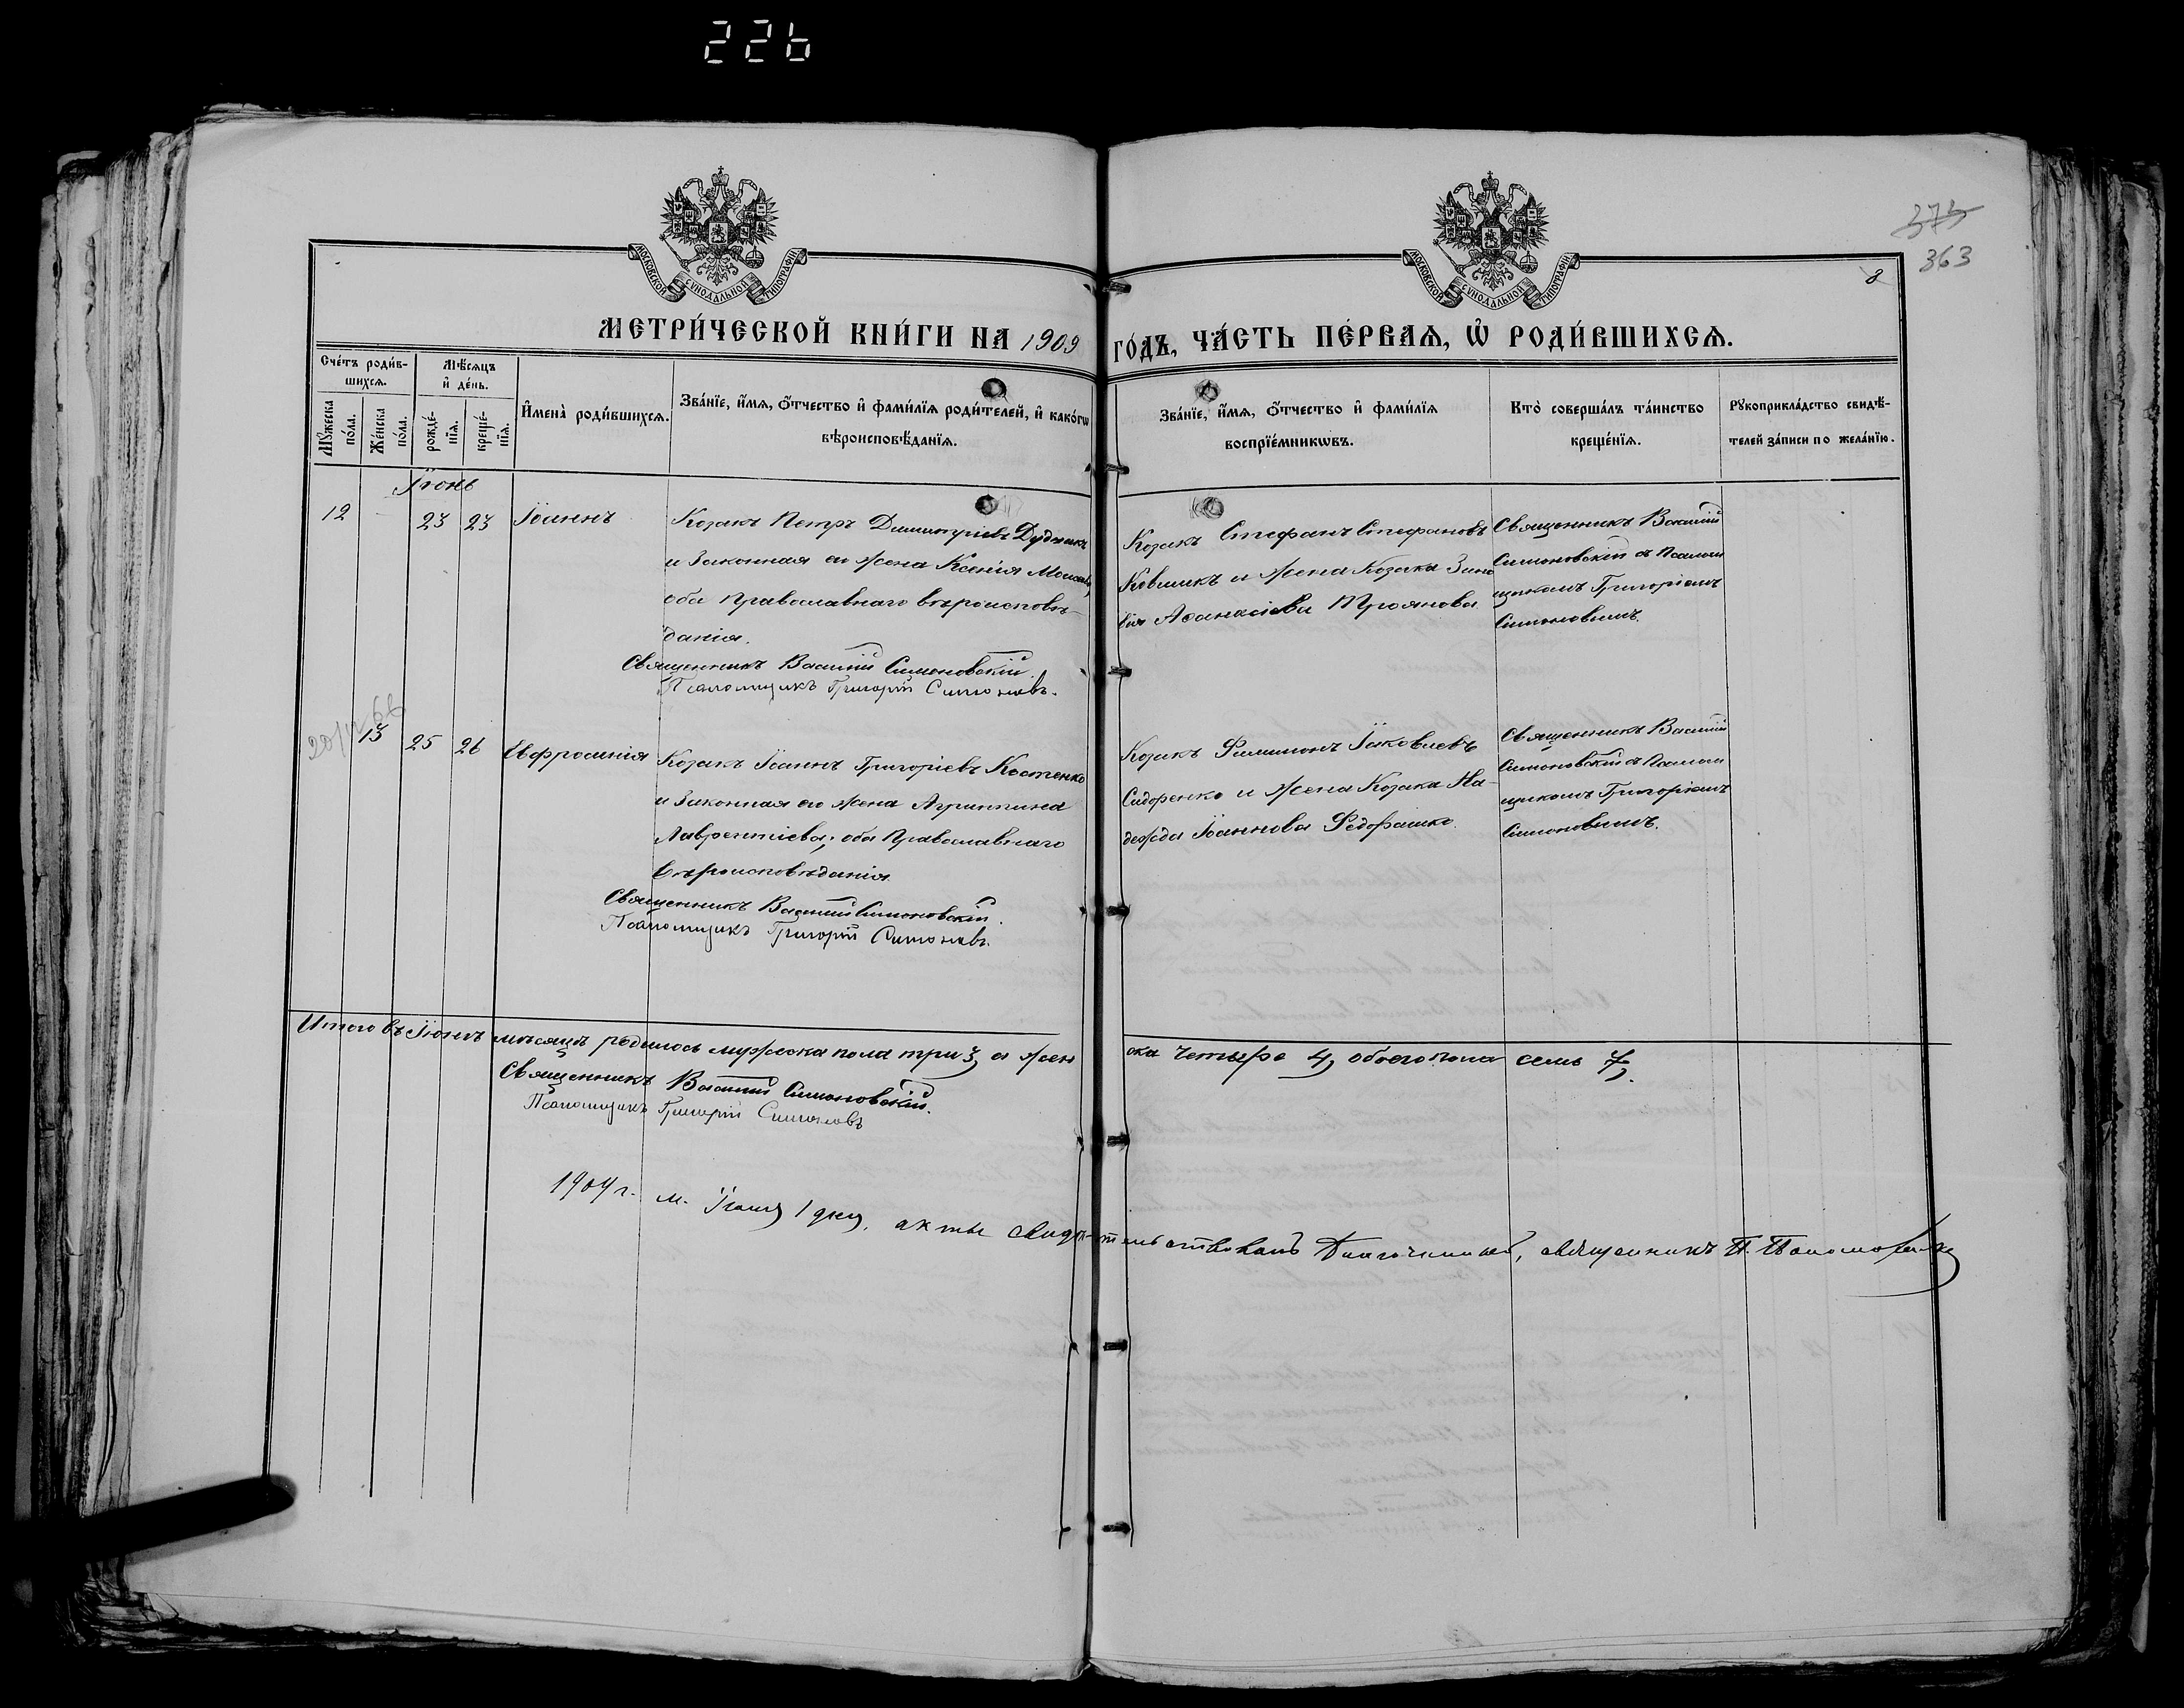 226
375
363
8
МОСКОВСКОЙ СѴНОДАЛЬНОЙ ТИПОГРАФІИ
МОСКОВСКОЙ СѴНОДАЛЬНОЙ ТИПОГРАФІИ
МЕТРИ́ЧЕСКОЙ КНИ́ГИ НА 1909 ГО́ДЪ, ЧА́СТЬ ПЕ́РВАѦ, Ѡ҆ РОДИ́ВШИХСѦ.
Сче́тъ роди́в-
шихсѧ.
Мѣ́сѧцъ
и҆ де́нь.
Мꙋ́жеска
по́ла.
Же́нска
по́ла.
рожде́-
нїѧ.
креще́-
нїѧ.
И҆мена̀ роди́вшихсѧ.
Зва́нїе, и҆́мѧ, ѻ҆́тчество и҆ фами́лїѧ роди́телей, и҆ како́гѡ
вѣроисповѣ́данїѧ.
Зва́нїе, и҆́мѧ, ѻ҆́тчество и҆ фами́лїѧ
воспрїе́мникѡвъ.
Кто̀ соверша́лъ та́инство
креще́нїѧ.
Рꙋкоприкла́дство свидѣ́-
телей за́писи по жела́нїю.
Іюнь
12 23 23 Іоаннъ
Козакъ Петръ Димитріевъ Дудникъ
и законная его жена Ксенія
оба Православнаго вѣроисповѣ-
данія.
Священникъ Василій Симоновскій.
Псаломщикъ Григорій Симоновъ.
Козакъ Стефанъ Стефановъ
Ковшикъ и жена Козака Зино
вія Аѳанасіева Троянова
Священникъ Василій
Симоновскій съ Псалом
щикомъ Григоріемъ
Симоновымъ.
13 25 26 Евфросинія
Козакъ Іоаннъ Григоріевъ Костенко
и законная его жена Агриппина
Лаврентіева; оба Православнаго
вѣроисповѣданія.
Священникъ Василій Симоновскій.
Псаломщикъ Григорій Симоновъ.
Козакъ Филимонъ Іаковлевъ
Сидоренко и жена Козака На-
дежда Іоаннова Федорашко.
Священникъ Василій
Симоновскій съ Псалом
щикомъ Григоріемъ
Симоновымъ.
Итого въ Іюнѣ мѣсяцѣ родилось мужеска пола три 3, а жен ска четыре 4, обоего пола семь 7.
Священникъ Василій Симоновскій.
Псаломщикъ Григорій Симоновъ
1909 г. м. Іюля 1 дня, акты свидѣтельствовалъ Благочинный, священникъ П. Пономаренко